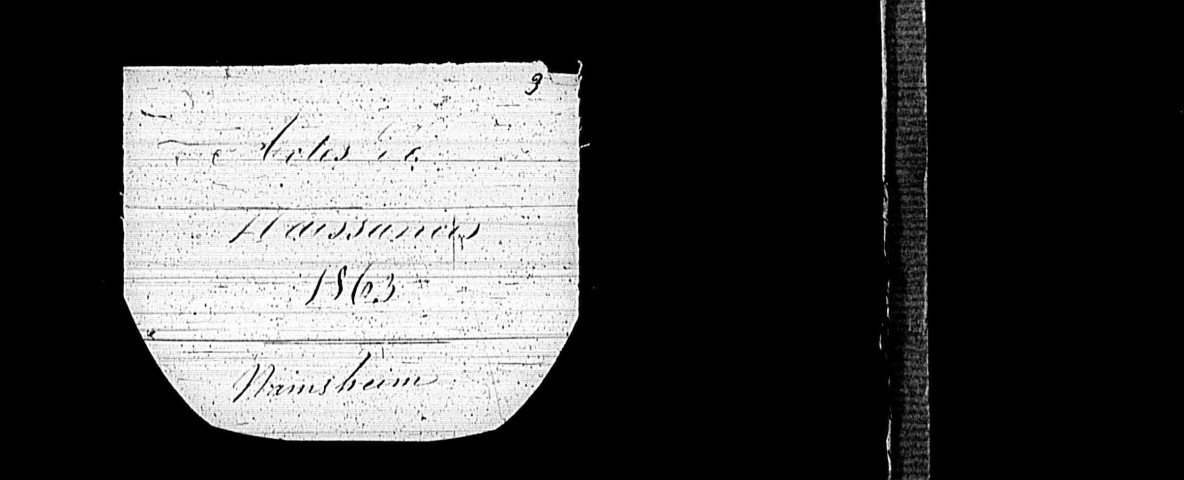 3
Actes de
Naissances
1863
Namsheim